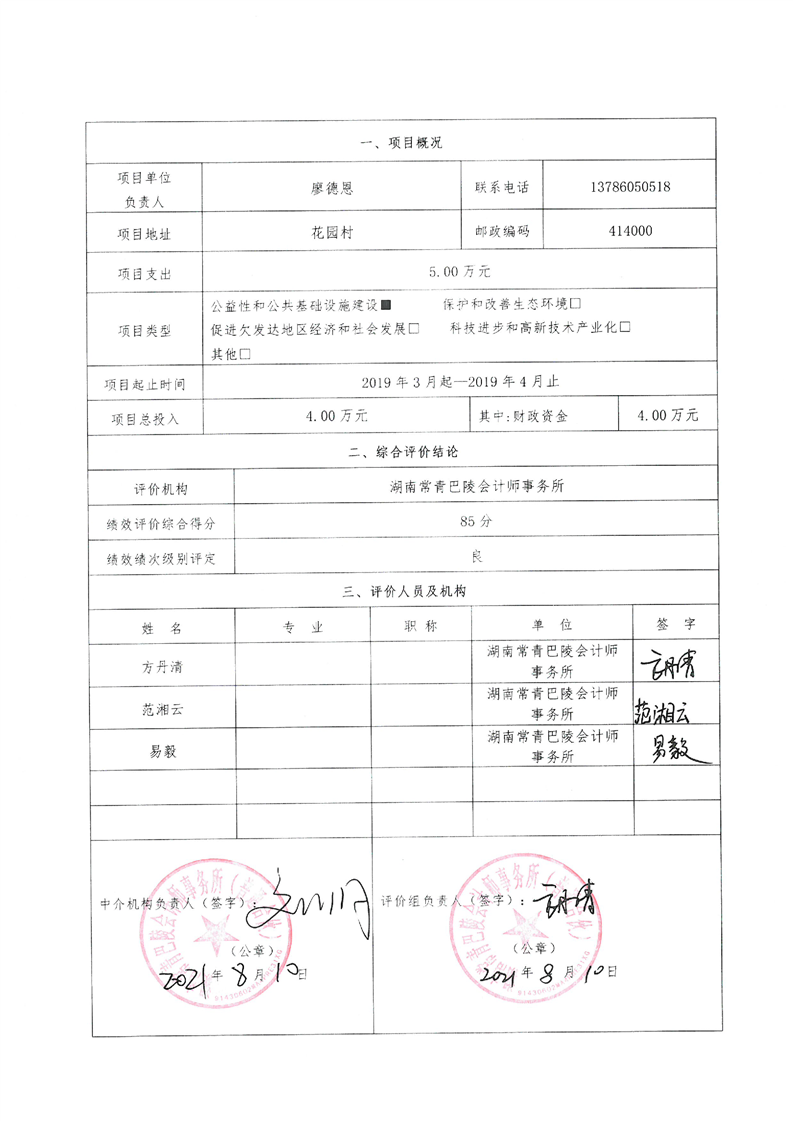 一、项目概况
项目单位
负责人
廖德恩
联系电话
13786050518
项目地址
花园村
邮政编码
414000
项目支出
5.00万元
项目类型
公益性和公共基础设施建设■ 保护和改善生态环境□
促进欠发达地区经济和社会发展□ 科技进步和高新技术产业化□
其他□
项目起止时间
2019年3月起—2019年4月止
项目总投入
4.00万元
其中:财政资金
4.00万元
二、综合评价结论
评价机构
湖南常青巴陵会计师事务所
绩效评价综合得分
85分
绩效绩次级别评定
良
三、评价人员及机构
姓 名
专 业
职 称
单 位
签 字
方丹清
湖南常青巴陵会计师
事务所
方丹清
范湘云
湖南常青巴陵会计师
事务所
范湘云
易毅
湖南常青巴陵会计师
事务所
易毅
中介机构负责人（签字）:
（公章）
2021年8月10日
评价组负责人（签字）: 方丹清
（公章）
2021年8月10日